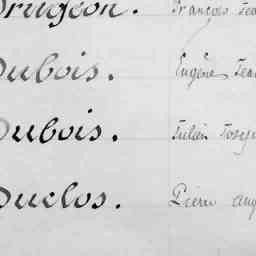 Drugeon. François Jea
Dubois. Eugène Jea
Dubois. Julien Josep
Duclos. Pierre Aug